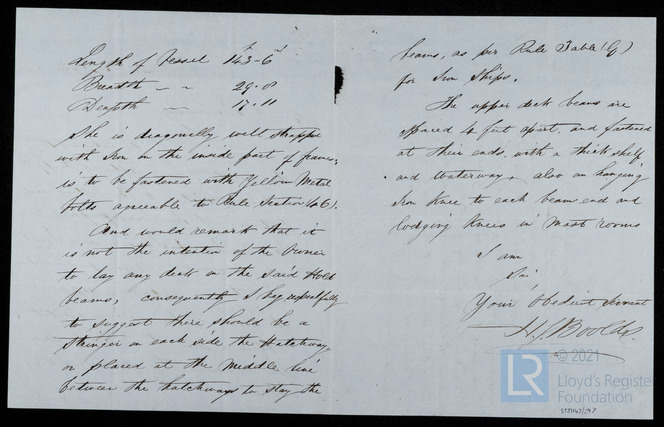 Length of Vessel 143-6
Breadth - " 29.8
Deapth " 17.11
She is diagonally well strapped
with Iron in the inside part of frames,
is to be fastened with Yellow Metal
bolts agreeable to Rule Section 46.
And would remark that it
is not the intention of the Owner
to lay any deck on the said Hold
beams, consequently I beg respectfully
to suggest there should be a
Stringer on each side the Hatchway
or placed at the Middle line
between the hatchways to stay the
beams, as per Rule Table (G)
for Iron Ships.
The upper deck beams are
spaced 4 feet apart, and fastened
at their ends, with a thick shelf
and waterway, also an hanging
Iron Knee to each beam end and
lodging Knees in most rooms
I am
Sir
Your Obedient Servant
© 2021
LR Lloyd's Register
Foundation